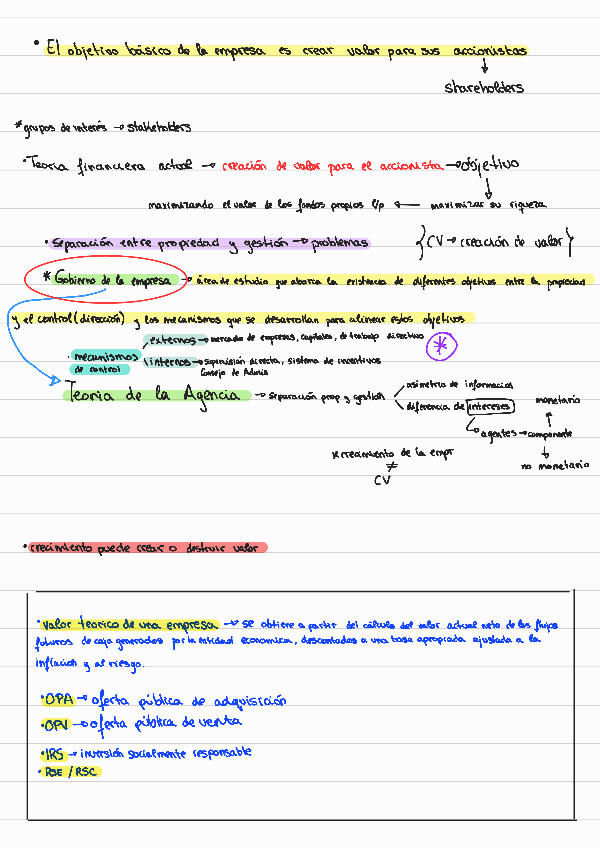 • El objetivo básico de la empresa es crear valor para sus accionistas
↓
shareholders
* grupos de interés → stakeholders
• Teoría financiera actual → creación de valor para el accionista → objetivo
↓
maximizando el valor de los fondos propios l/p ← maximizar su riqueza
• Separación entre propiedad y gestión → problemas {CV → creación de valor}
* Gobierno de la empresa → área de estudio que abarca la existencia de diferentes objetivos entre la propiedad
y el control (dirección) y los mecanismos que se desarrollan para alinear estos objetivos
externos → mercado de empresas, capitales, de trabajo directivo *
• mecanismos
de control
internos → supervisión directa, sistema de incentivos
Consejo de Admin
Teoría de la Agencia → separación prop y gestión
asimetría de información
diferencia de intereses
agentes → componente
monetario
no monetario
* crecimiento de la empr
≠
CV
• crecimiento puede crear o destruir valor
• Valor teórico de una empresa → se obtiene a partir del cálculo del valor actual neto de los flujos
futuros de caja generados por la entidad economica, descontados a una tasa apropiada ajustada a la
inflación y al riesgo.
• OPA → oferta pública de adquisición
• OPV → oferta pública de venta
• IRS → inversión socialmente responsable
• RSE / RSC